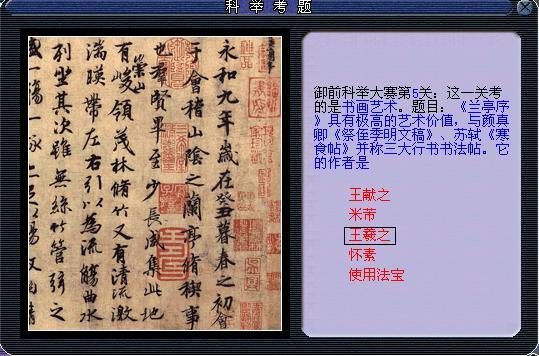 科举考题
永和九年歲在癸丑暮春之初會
于會稽山陰之蘭亭脩禊事
也羣賢畢至少長咸集此地
崇山
有峻領茂林脩竹又有清流激
湍暎帶左右引以為流觴曲水
列坐其次雖無絲竹管弦之
御前科举大赛第5关：这一关考
的是书画艺术。题目：《兰亭序
》具有极高的艺术价值，与颜真
卿《祭侄季明文稿》、苏轼《寒
食帖》并称三大行书书法帖。它
的作者是
王献之
米芾
王羲之
怀素
使用法宝